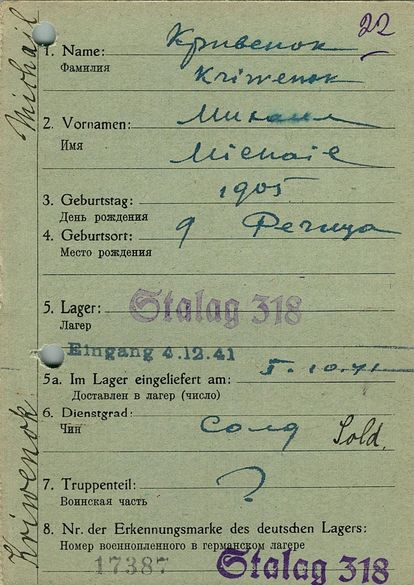 22
1. Name: Кривенок
Фамилия Kriwenok
2. Vornamen: Михаил
Имя Michail
1905
3. Geburtstag:
День рождения
4. Geburtsort: г Речица
Место рождения
5. Lager: Stalag 318
Лагер
Eingang 4.12.41
5a. Im Lager eingeliefert am: 10.41
Доставлен в лагер (число)
6. Dienstgrad: Солд Sold.
Чин
7. Truppenteil: ?
Воинская часть
8. Nr. der Erkennungsmarke des deutschen Lagers:
Номер военнопленного в германском лагере
17387 Stalag 318
Michail
Kriwenok